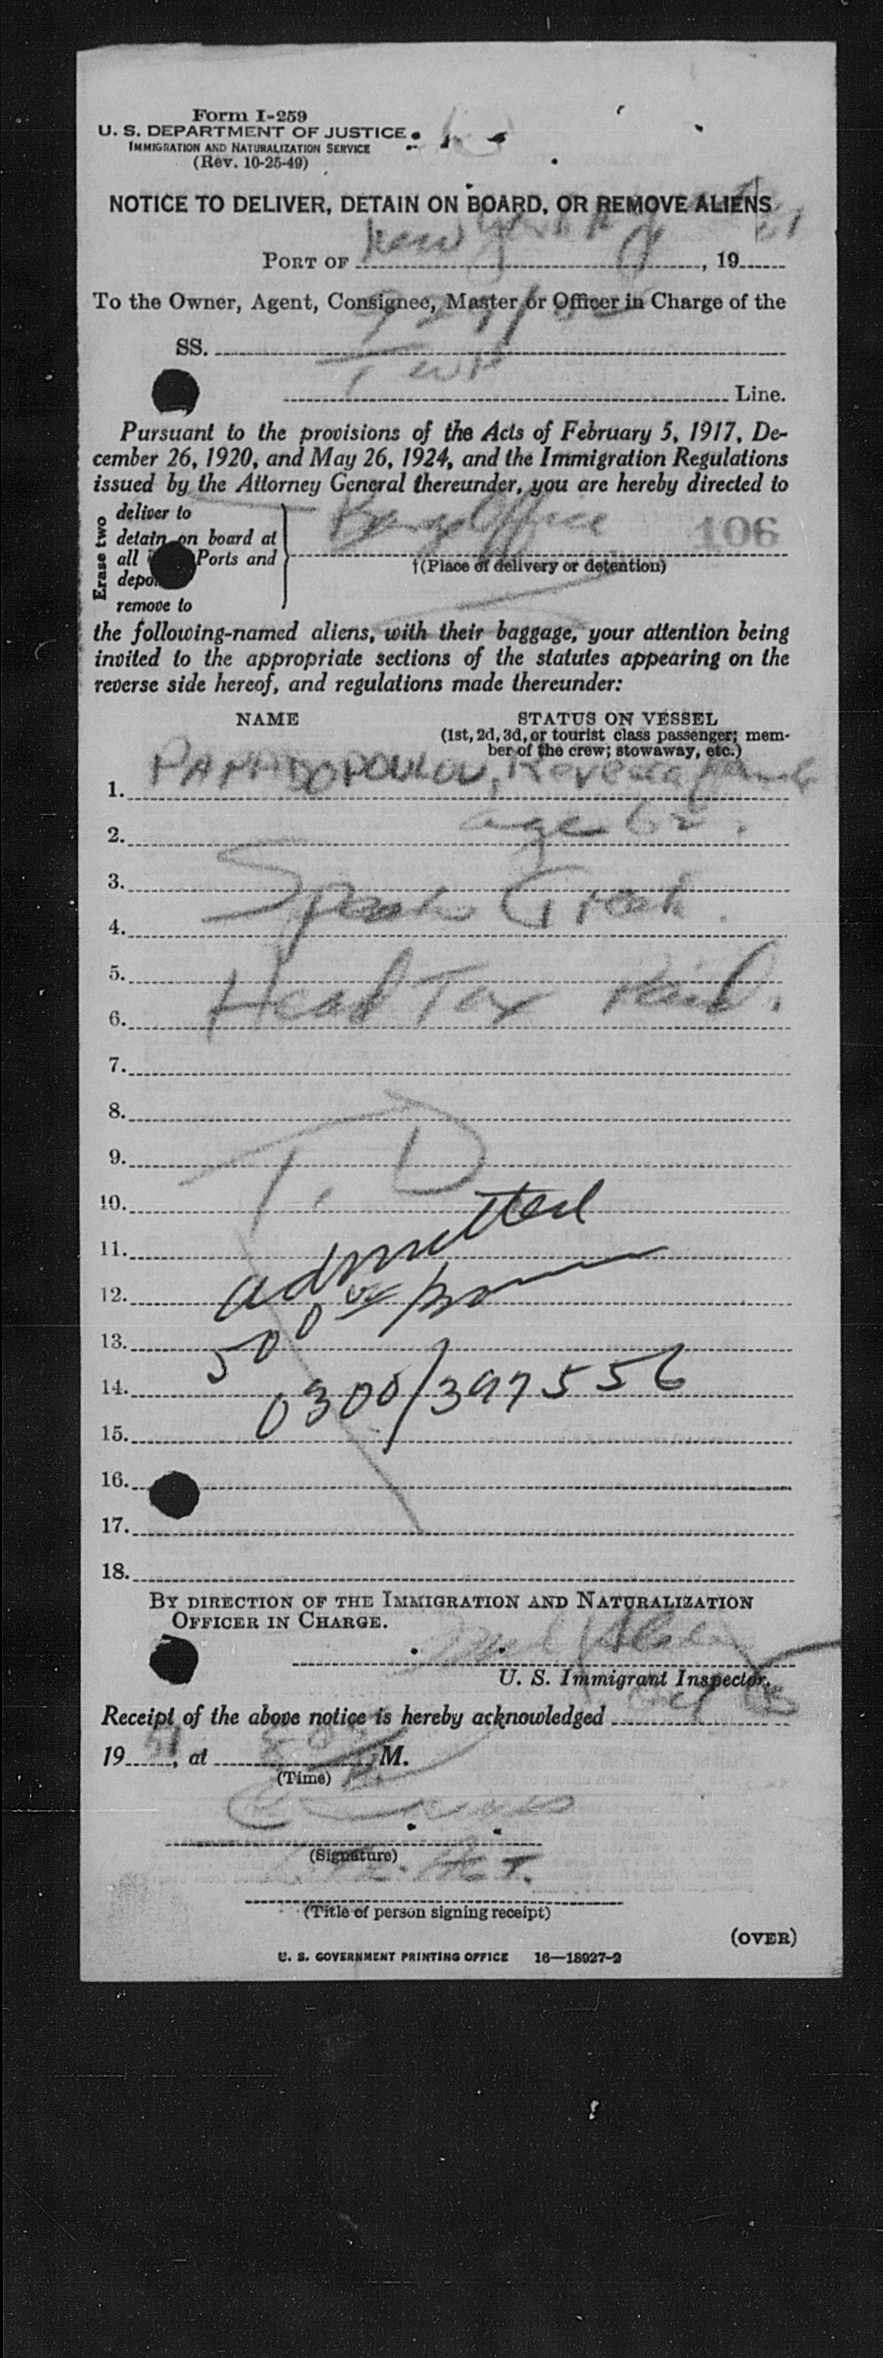 Form I-259
U. S. DEPARTMENT OF JUSTICE
IMMIGRATION AND NATURALIZATION SERVICE
(Rev. 10-25-49)
NOTICE TO DELIVER, DETAIN ON BOARD, OR REMOVE ALIENS
PORT OF New York N Y, 1951
To the Owner, Agent, Consignee, Master or Officer in Charge of the
SS. 727/
TWA Line.
Pursuant to the provisions of the Acts of February 5, 1917, De-
cember 26, 1920, and May 26, 1924, and the Immigration Regulations
issued by the Attorney General thereunder, you are hereby directed to
Erase two
deliver to
detain on board at
all Ports and
remove to
Barge Office 106
†(Place of delivery or detention)
the following-named aliens, with their baggage, your attention being
invited to the appropriate sections of the statutes appearing on the
reverse side hereof, and regulations made thereunder:
NAME STATUS ON VESSEL
(1st, 2d, 3d, or tourist class passenger; mem-
ber of the crew; stowaway, etc.)
1. PAPADOPOULOU,
2. age 62.
3.
4. Speaks Greek.
5.
6. Head Tax Paid.
7.
8.
9. T. D
10.
11. admitted
12.
13. 500 00
14. 0300/397556
15.
16.
17.
18.
BY DIRECTION OF THE IMMIGRATION AND NATURALIZATION
OFFICER IN CHARGE.
U. S. Immigrant Inspector.
Receipt of the above notice is hereby acknowledged
1951, at M.
(Time)
(Signature)
(Title of person signing receipt)
(OVER)
U. S. GOVERNMENT PRINTING OFFICE 16—18927-2